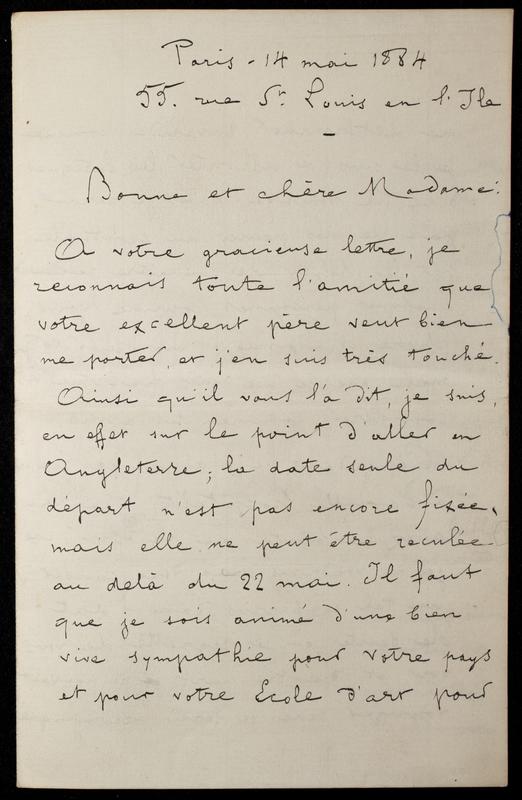 Paris - 14 mai 1884
55. rue St. Louis en l'Ile
Bonne et chère Madame:
A votre gracieuse lettre, je
reconnais toute l'amitié que
votre excellent père veut bien
me porter, et j'en suis très touché.
Ainsi qu'il vous l'a dit, je suis,
en effet sur le point d'aller en
Angleterre; la date seule du
départ n'est pas encore fixée,
mais elle ne peut être reculée
au delà du 22 mai. Il faut
que je sois animé d'une bien
vive sympathie pour votre pays
et pour votre Ecole d'art pour